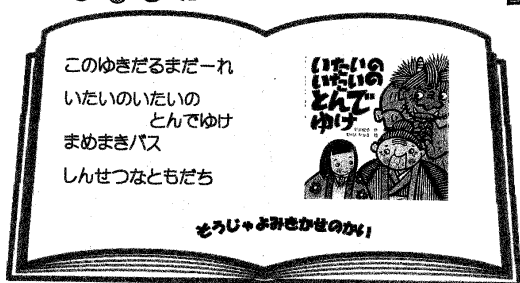 このゆきだるまだーれ
いたいのいたいの
とんでゆけ
まめまきバス
しんせつなともだち
いたいの
いたいの
とんで
ゆけ
そうじゃよみきかせのかい